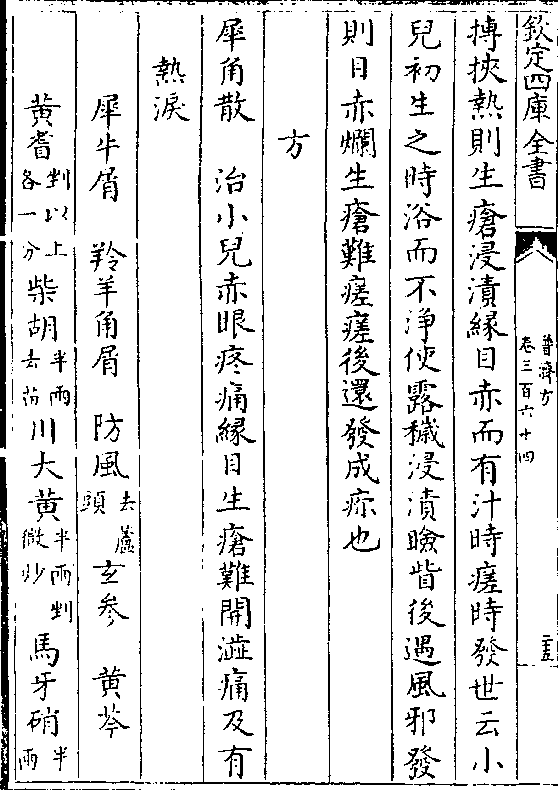 欽定四庫全書
普濟方
卷三百六十四
搏挾熱則生瘡浸漬緣目赤而有汁時瘥時發世云小
兒初生之時浴而不淨使露穢浸漬瞼眥後遇風邪發
則目赤爛生瘡難瘥瘥後還發成疹也
方
犀角散　治小兒赤眼疼痛緣目生瘡難開澁痛及有
熱淚
犀牛屑　羚羊角屑　防風去蘆頭　玄參　黄芩
黄耆剉以上各一分　柴胡半兩去苗　川大黄半兩剉微炒　馬牙硝半兩